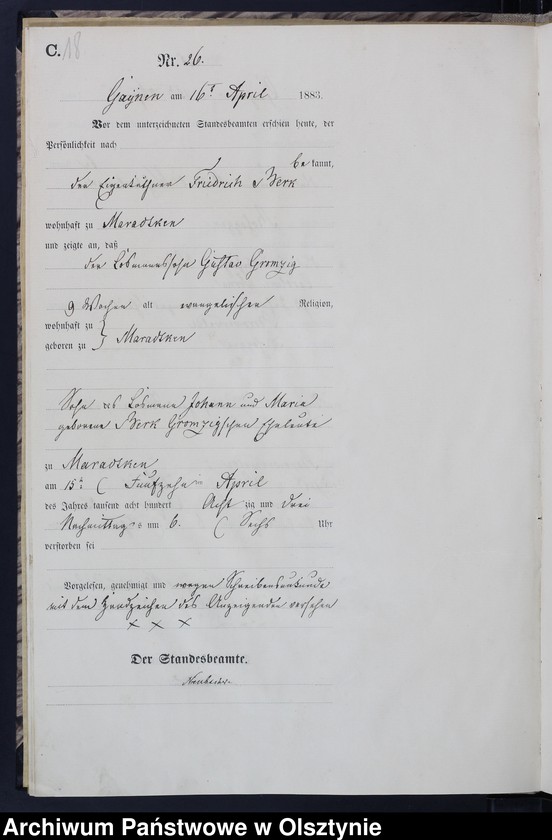 C. 18
Nr. 26.
Gaynen am 16t April 1883.
Vor dem unterzeichneten Standesbeamten erschien heute, der
Persönlichkeit nach
bekannt,
der Eigenkäthner Friedrich Berk
wohnhaft zu Maradtken
und zeigte an, daß
der Losmannssohn Gustav Gromzig
9 Wochen alt evangelischer Religion,
wohnhaft zu
geboren zu } Maradtken
Sohn des Losmann Johann und Marie
geborene Berk Gromzigschen Eheleute
zu Maradtken
am 15t (Fünfzehn April
des Jahres tausend acht hundert Acht zig und drei
Nachmittags um 6. (Sechs Uhr
verstorben sei
Vorgelesen, genehmigt und wegen Schreibensunkunde
mit dem Handzeichen des Anzeigenden versehen
x x x
Der Standesbeamte.
Archiwum Państwowe w Olsztynie